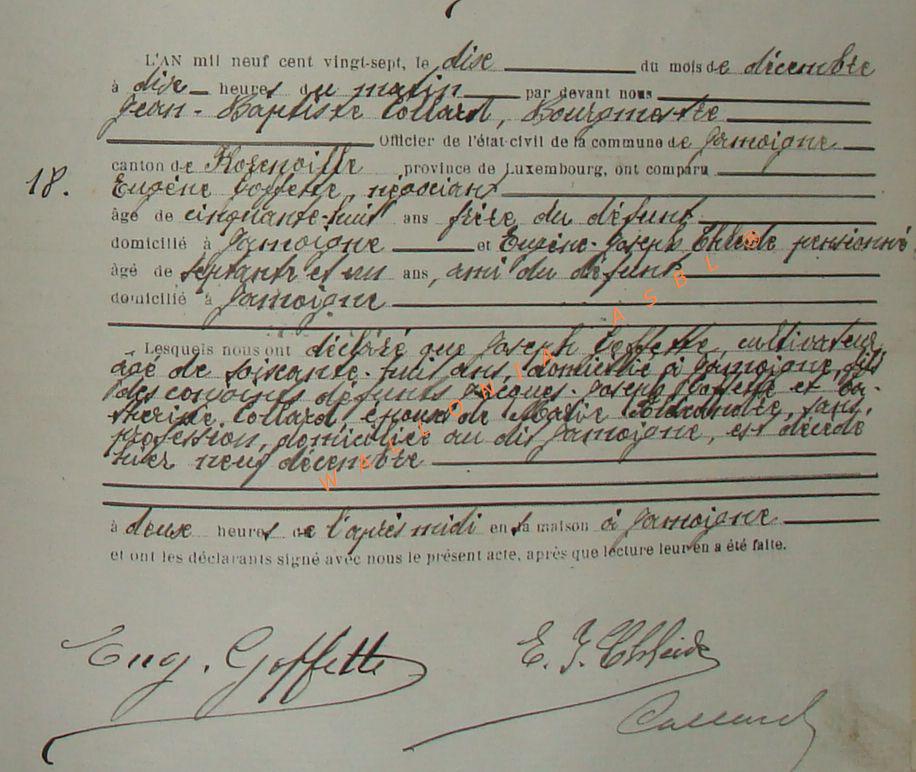 L'AN mil neuf cent vingt-sept, le dix du mois de décembre
à dix heures du matin par devant nous
Jean-Baptiste Collard, Bourgmestre
Officier de l'état-civil de la commune de Jamoigne
canton de province de Luxembourg, ont comparu
18. Eugène Goffette, négociant
âgé de cinquante-huit ans frère du défunt
domicilié à Jamoigne et Eugène-Joseph pensionné
âgé de septante et un ans, ami du défunt
domicilié à Jamoigne
Lesquels nous ont déclaré que Joseph Goffette, cultivateur
âgé de soixante-huit ans, domicilié à Jamoigne, fils
des conjoints défunts Jacques-Joseph Goffette et Ca-
therine Collard époux de Marie sans
profession, domiciliée au dit Jamoigne, est décédé
hier neuf décembre
à deux heures de l'après midi en sa maison à Jamoigne
et ont les déclarants signé avec nous le présent acte, après que lecture leur en a été faite.
Eug. Goffette
E. J.
Collard
WALLONIA ASBL